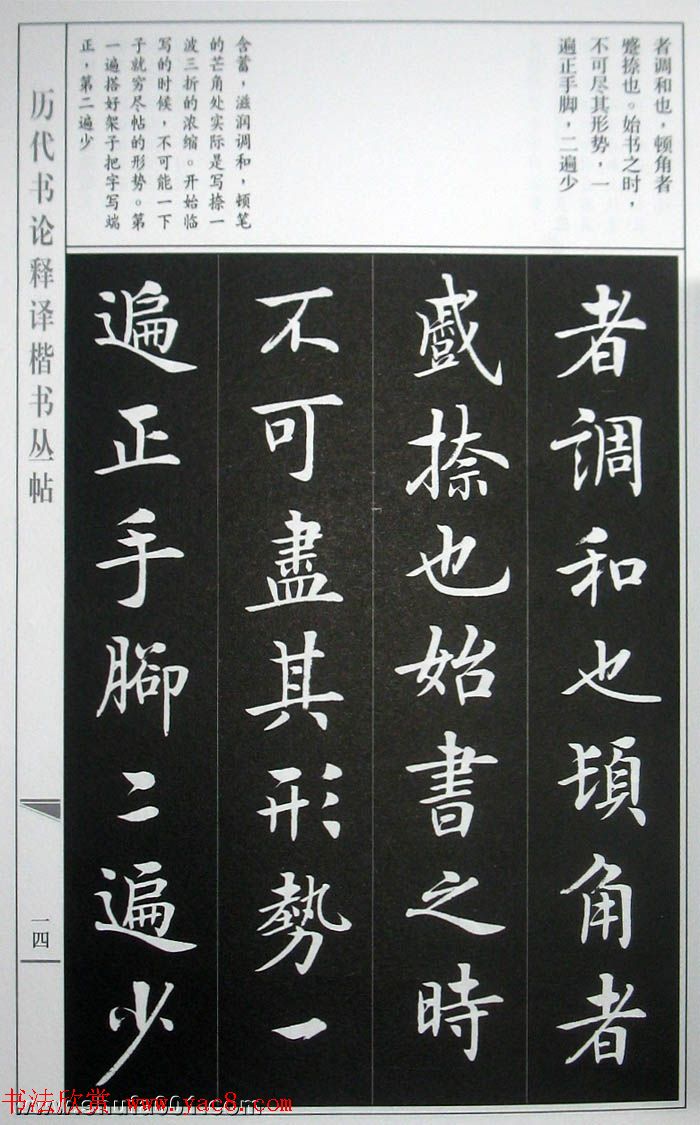 者调和也，顿角者
蹙捺也。始书之时，
不可尽其形势，一
遍正手脚，二遍少
含蓄，滋润调和，顿笔
的芒角处实际是写捺一
波三折的浓缩。开始临
写的时候，不可能一下
子就穷尽帖的形势。第
一遍搭好架子把字写端
正，第二遍少
者調和也頓角者
蹙捺也始書之時
不可盡其形勢一
遍正手腳二遍少
历代书论释译楷书丛帖
一四
书法欣赏 www.yac8.com